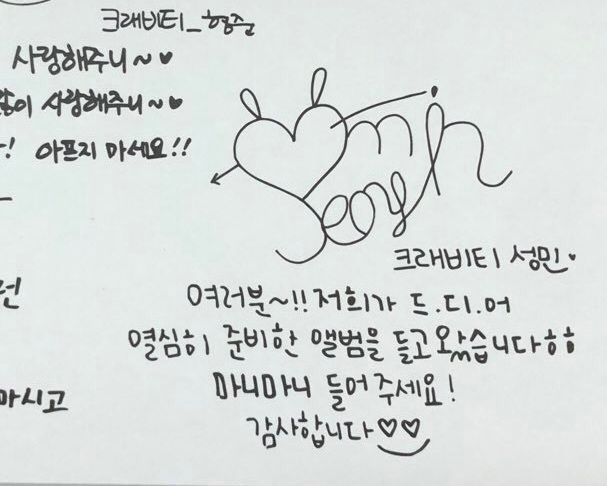 크래비티_형준
사랑해주니~♥
많이 사랑해주니~♥
! 아프지 마세요!!
Seongmin
크래비티 성민♥
여러분~!! 저희가 드.디.어
열심히 준비한 앨범을 들고왔습니다ㅎㅎ
마니마니 들어주세요!
마시고
감사합니다♡♡